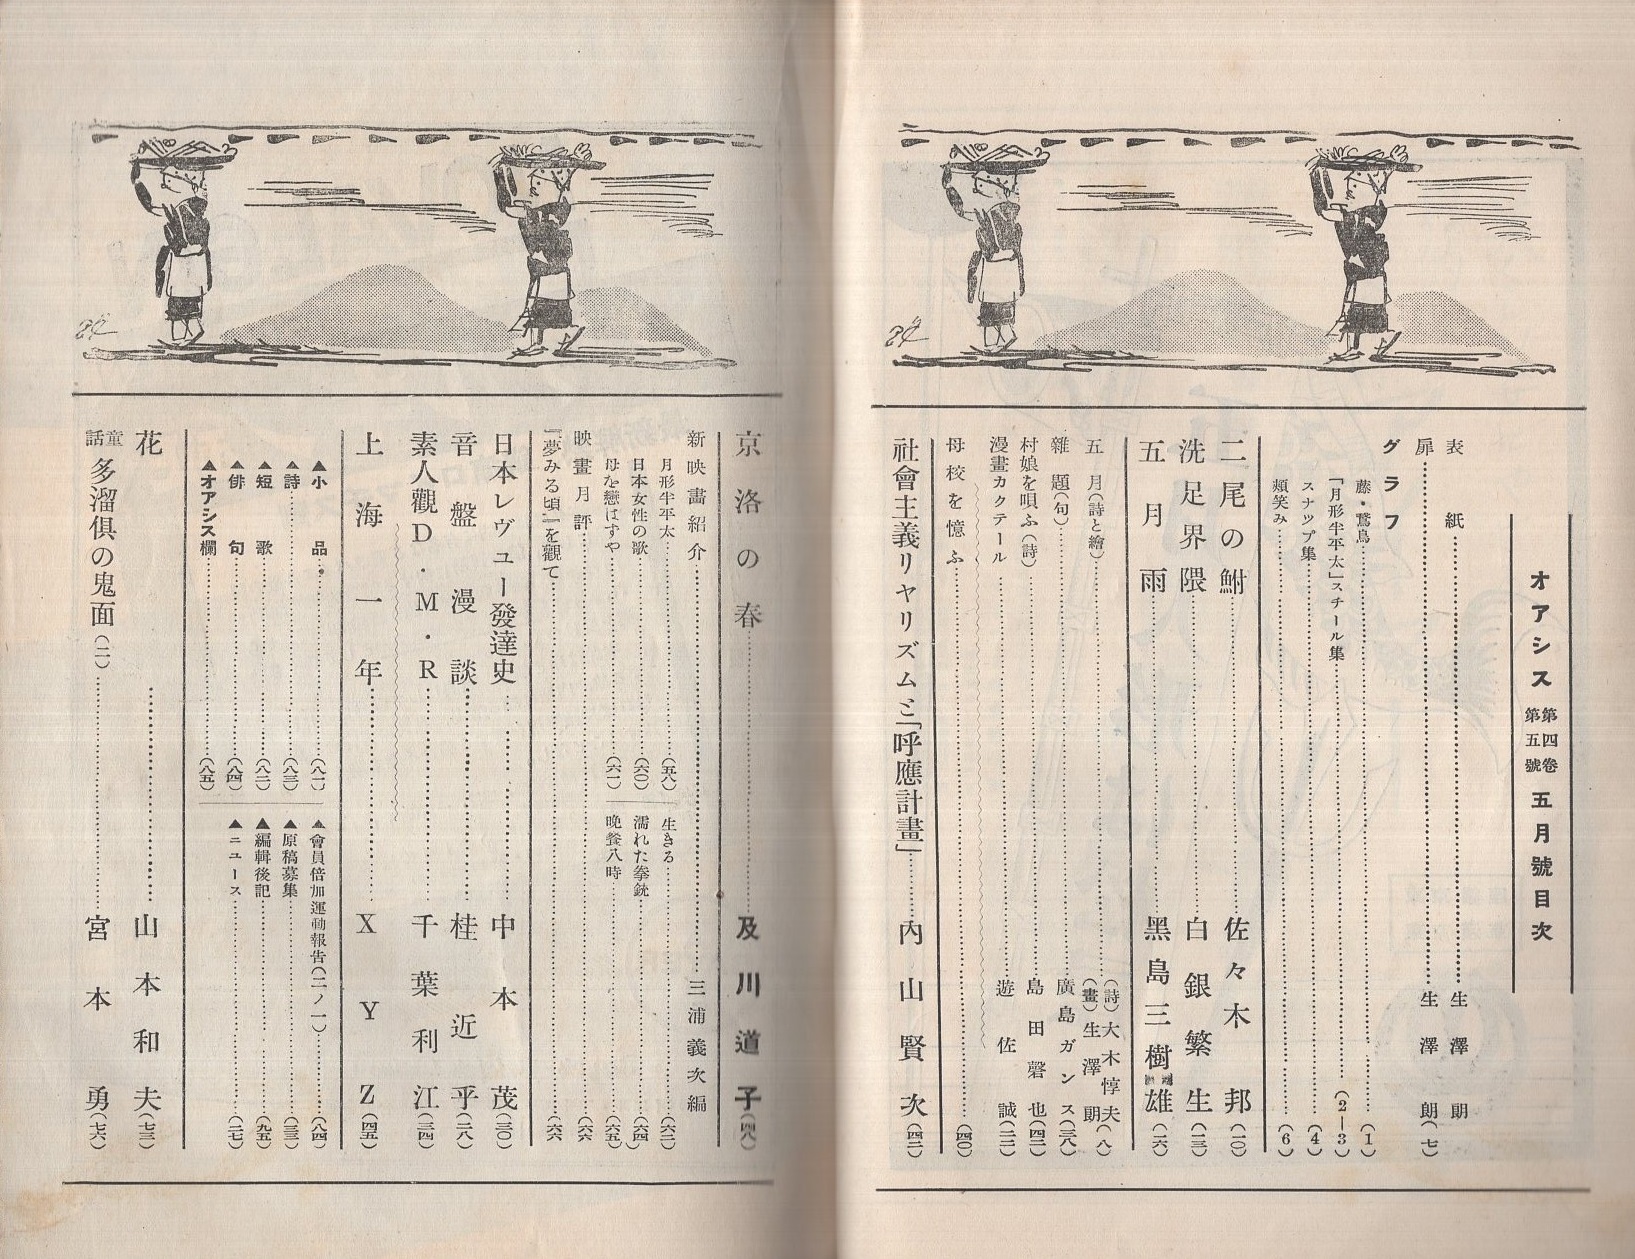 オアシス 第四巻 第五號 五月號目次
表紙 生澤朗
扉 生澤朗(七)
グラフ
藤・鵞鳥 (1)
「月形半平太」スチール集 (2―3)
スナツプ集 (4)
頰笑み (6)
二尾の鮒 佐々木邦(一〇)
洗足界隈 白銀繁生(一三)
五月雨 黑島三樹雄(一六)
五月(詩と繪) (詩)大木惇夫 (畫)生澤朗(八)
雜題(句) 廣島ガンス(三八)
村娘を唄ふ(詩) 島田磬也(四二)
漫畫カクテール 遊佐誠(二二)
母校を憶ふ (四〇)
社會主義リヤリズムと「呼應計畫」 内山賢次(四二)
京洛の春 及川道子(四八)
新映畫紹介 三浦義次編
月形半平太 (五八)
日本女性の歌 (六〇)
母を戀はずや (六一)
生きる (六二)
濡れた拳銃 (六四)
晩餐八時 (六五)
映畫月評 (六六
「夢みる頃」を觀て (六六
日本レヴュー發達史 中本茂(三〇)
音盤漫談 桂近乎(二八)
素人觀D・M・R 千葉利江(三四)
上海一年 XYZ(四五)
▲小品 (八一)
▲詩 (八三)
▲短歌 (八二)
▲俳句 (八四)
▲オアシス欄 (八五)
▲會員倍加運動報告(二ノ一) (八四)
▲原稿募集 (三三)
▲編輯後記 (九五)
▲ニユース (二七)
花 山本和夫(七三)
童話 多溜俱の鬼面(二) 宮本勇(七六)